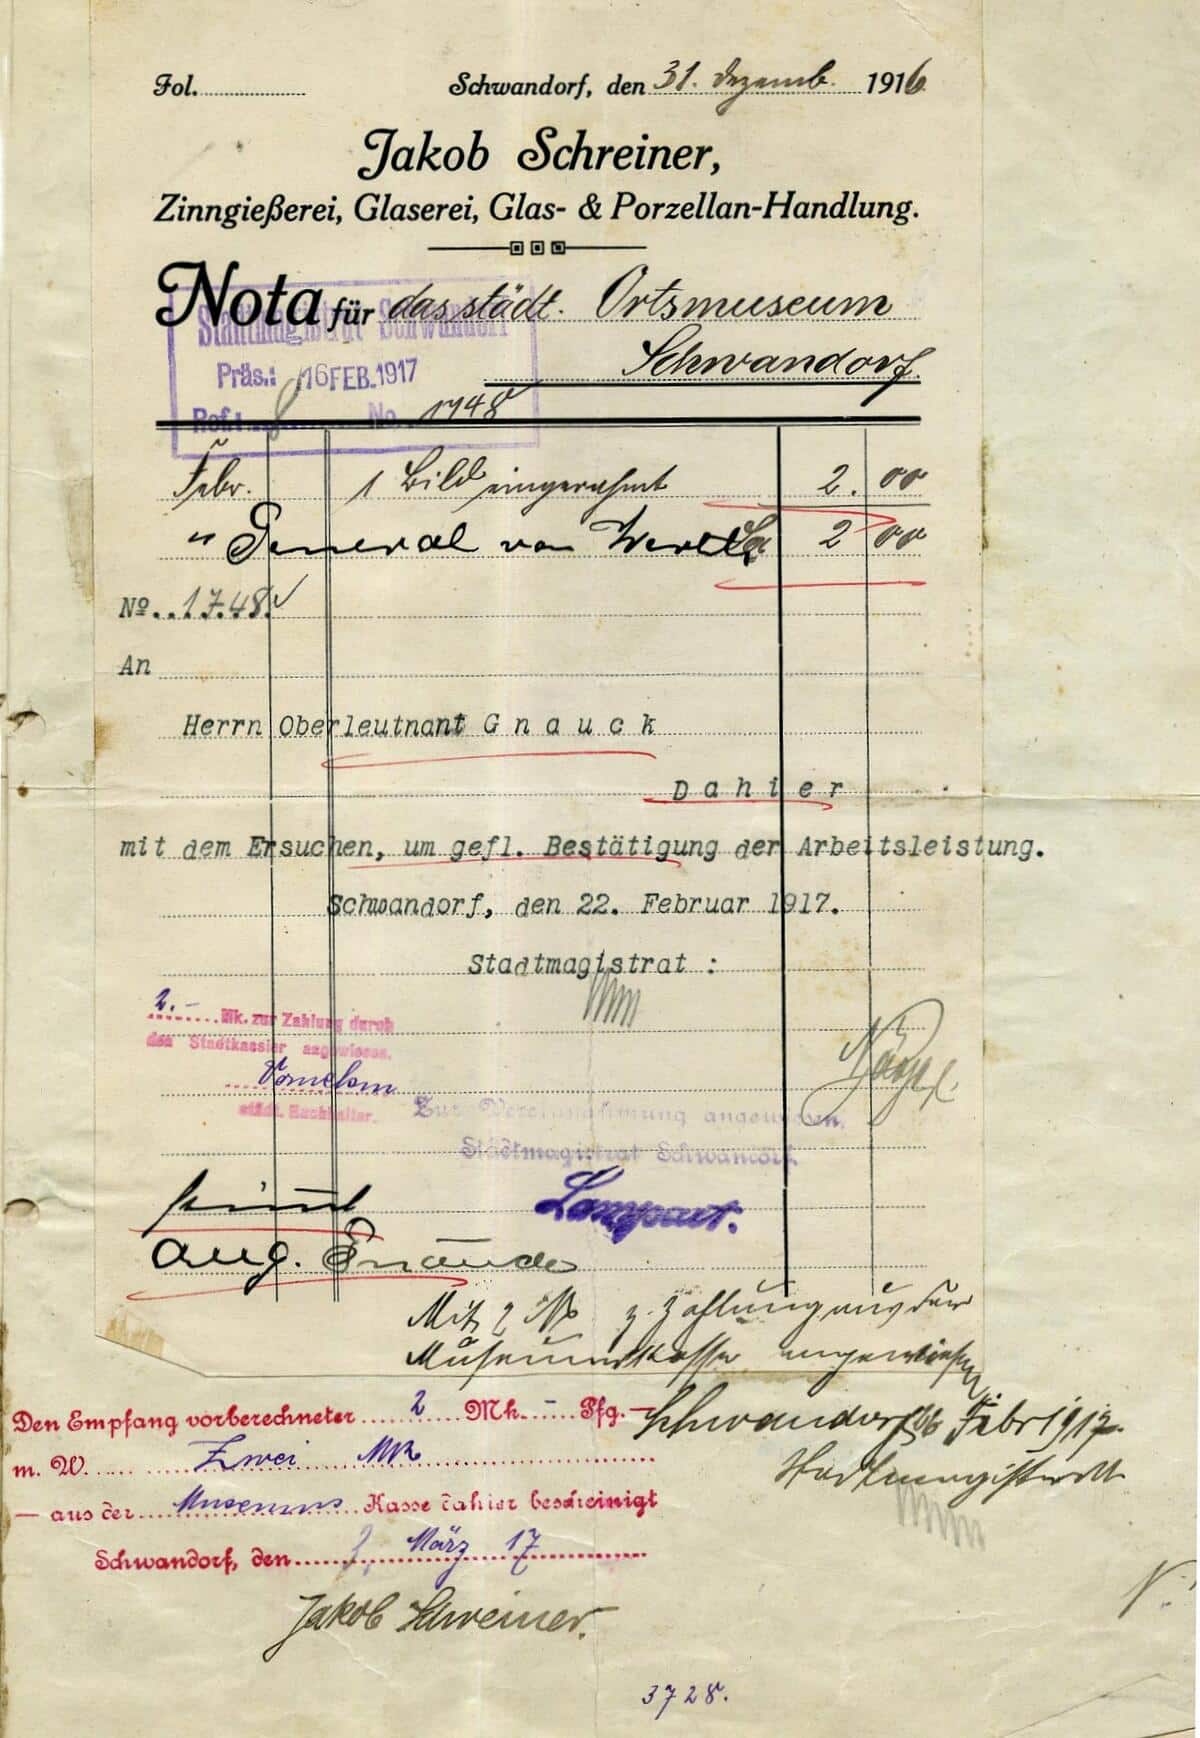 Fol. ........ Schwandorf, den 31. Dezemb. 1916
Jakob Schreiner,
Zinngießerei, Glaserei, Glas- & Porzellan-Handlung.
Nota für das städt. Ortsmuseum
Schwandorf
Stadtmagistrat Schwandorf
Präs.: 16 FEB. 1917
Ref.: No. 1748
Febr. 1 Bild eingerahmt 2. 00
" General von 2 00
No. 1748
An
Herrn Oberleutnant Gnauck
Dahier
mit dem Ersuchen, um gefl. Bestätigung der Arbeitsleistung.
Schwandorf, den 22. Februar 1917.
Stadtmagistrat :
2.- Mk. zur Zahlung durch
den Stadtkassier angewiesen.
städt. Buchhalter.
Zur Vereinnahmung angewiesen.
Stadtmagistrat Schwandorf.
Lampart.
Aug.
Mit 2 M z. Zahlung aus der
Museumskasse angewiesen
Schwandorf 26 Febr 1917.
Stadtmagistrat
Den Empfang vorberechneter 2 Mk - Pfg. -
m. W. Zwei Mk
- aus der Museums Kasse dahier bescheinigt
Schwandorf, den März 17
Jakob Schreiner.
3728.